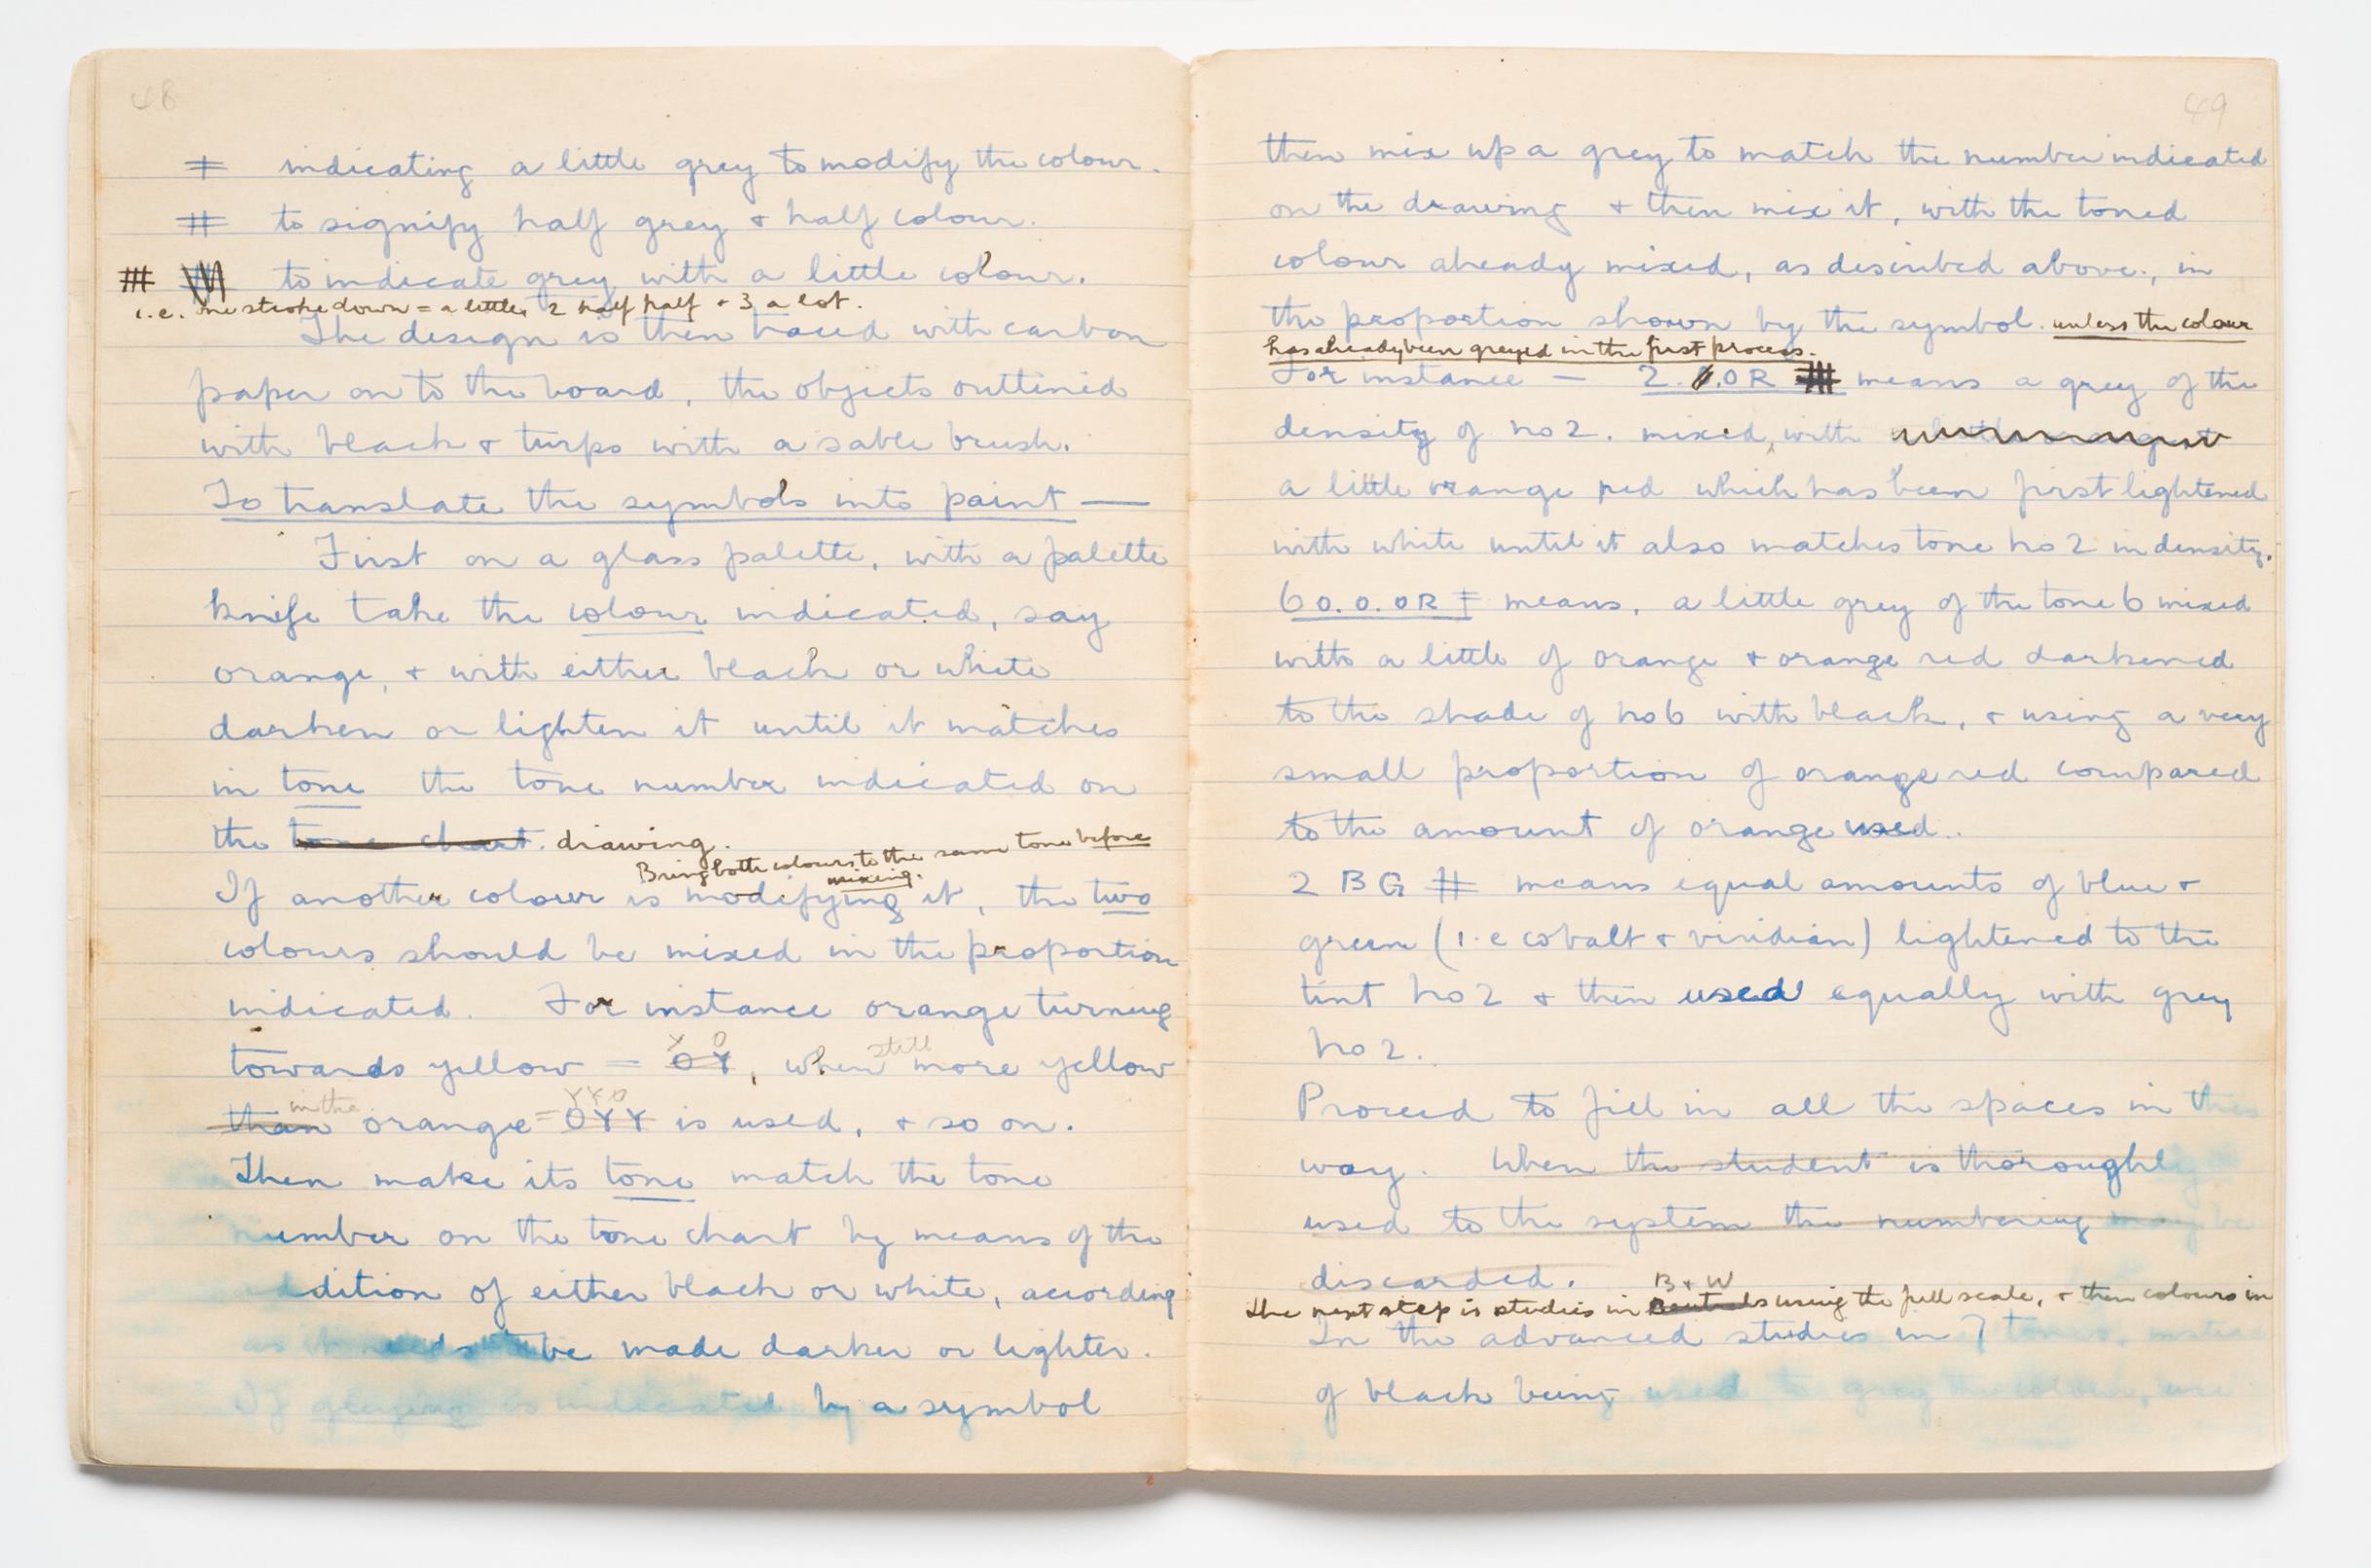 48
ǂ indicating a little grey to modify the colour.
# to signify half grey + half colour.
to indicate grey with a little colour.
i.e. one stroke down = a little, 2 half half + 3 a lot.
The design is then traced with carbon
paper on to the board, the objects outlined
with black + turps with a sable brush.
To translate the symbols into paint —
First on a glass palette, with a palette
knife take the colour indicated, say
orange, + with either black or white
darken or lighten it until it matches
in tone the tone number indicated on
the tone chart. drawing.
Bring both colours to the same tone before
mixing.
If another colour is modifying it, the two
colours should be mixed in the proportion
indicated. For instance orange turning
Y O
still
towards yellow = OY, when more yellow
in the
YYO
than orange = OYY is used, + so on.
Then make its tone match the tone
number on the tone chart by means of the
addition of either black or white, according
as it needs to be made darker or lighter.
If greying is indicated by a symbol
49
then mix up a grey to match the number indicated
on the drawing + then mix it, with the toned
colour already mixed, as described above, in
the proportion shown by the symbol. unless the colour
has already been greyed in the first process.
For instance — 2. .OR means a grey of the
density of no 2. mixed, with
a little orange red which has been first lightened
with white until it also matches tone no 2 in density.
6 O.O.OR ǂ means, a little grey of the tone 6 mixed
with a little of orange + orange red darkened
to the shade of no 6 with black, + using a very
small proportion of orange red compared
to the amount of orange used.
2 BG # means equal amounts of blue +
green (i.e cobalt + viridian) lightened to the
tint no 2 + then used equally with grey
no 2.
Proceed to fill in all the spaces in this
way. When the student is thoroughly
used to the system the numbering may be
discarded.
B + W
The next step is studies in neutrals using the full scale, + then colours in
In the advanced studies in 7 tones, instead
of black being used to grey the colour, use